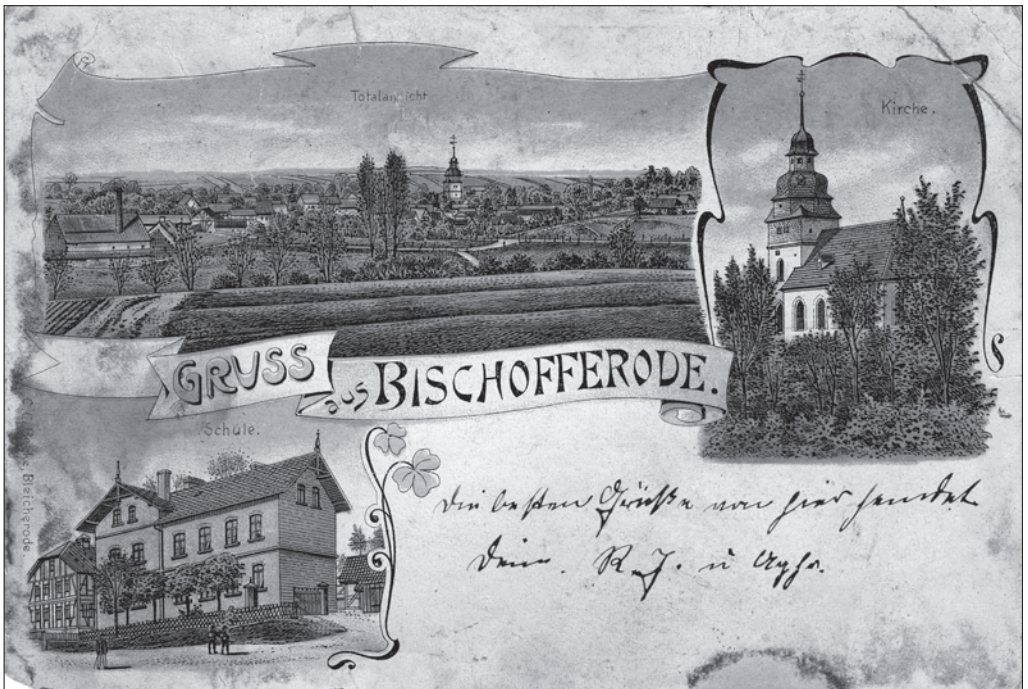 Totalansicht
Kirche.
GRUSS
aus BISCHOFFERODE.
Schule.
Bleicherode.
Die besten Grüße von hier sendet
Dein R. J. u